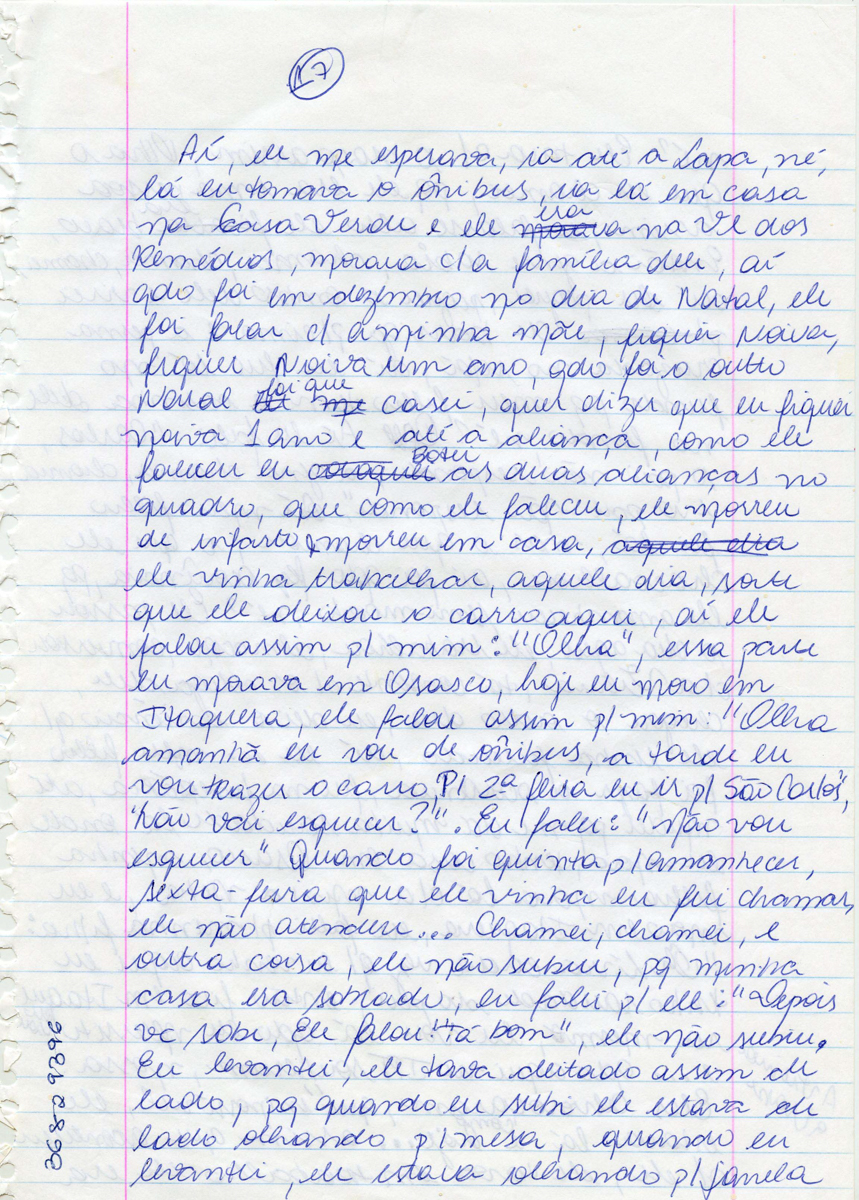 17
Aí, ele me esperava, ia até a Lapa, né,
lá eu tomava o ônibus, ia lá em casa
na Casa Verde e ele morava era na Vl dos
Remédios, morava c/a família dele, aí
qdo foi em dezembro no dia de Natal, ele
foi falar c/ a minha mãe, fiquei Noiva,
fiquei Noiva um ano, qdo foi o outro
Natal foi que me casei, quer dizer que eu fiquei
noiva 1 ano e até a aliança, como ele
faleceu eu coloquei Botei as duas alianças no
quadro, que como ele faleceu, ele morreu
de infarto, morreu em casa, aquele dia
ele vinha trabalhar, aquele dia, sorte
que ele deixou o carro aqui, aí ele
falou assim p/ mim: "Olha", essa parte
eu morava em Osasco, hoje eu moro em
Itaquera, ele falou assim p/ mim: "Olha
amanhã eu vou de ônibus, a tarde eu
vou trazer o carro, P/ 2ª feira eu ir p/ São Carlos",
"não vai esquecer?". Eu falei: "não vou
esquecer" Quando foi quinta p/ amanhecer,
sexta-feira que ele vinha eu fui chamar,
ele não atendeu... Chamei, chamei, e
outra coisa, ele não subiu, pq minha
casa era sobrado, eu falei p/ ele: "Depois
vc sobe, Ele falou: "Tá bom", ele não subiu.
Eu levantei, ele tava deitado assim de
lado, pq quando eu subi ele estava de
lado olhando p/ mesa, quando eu
levantei, ele estava olhando p/ janela
36829396